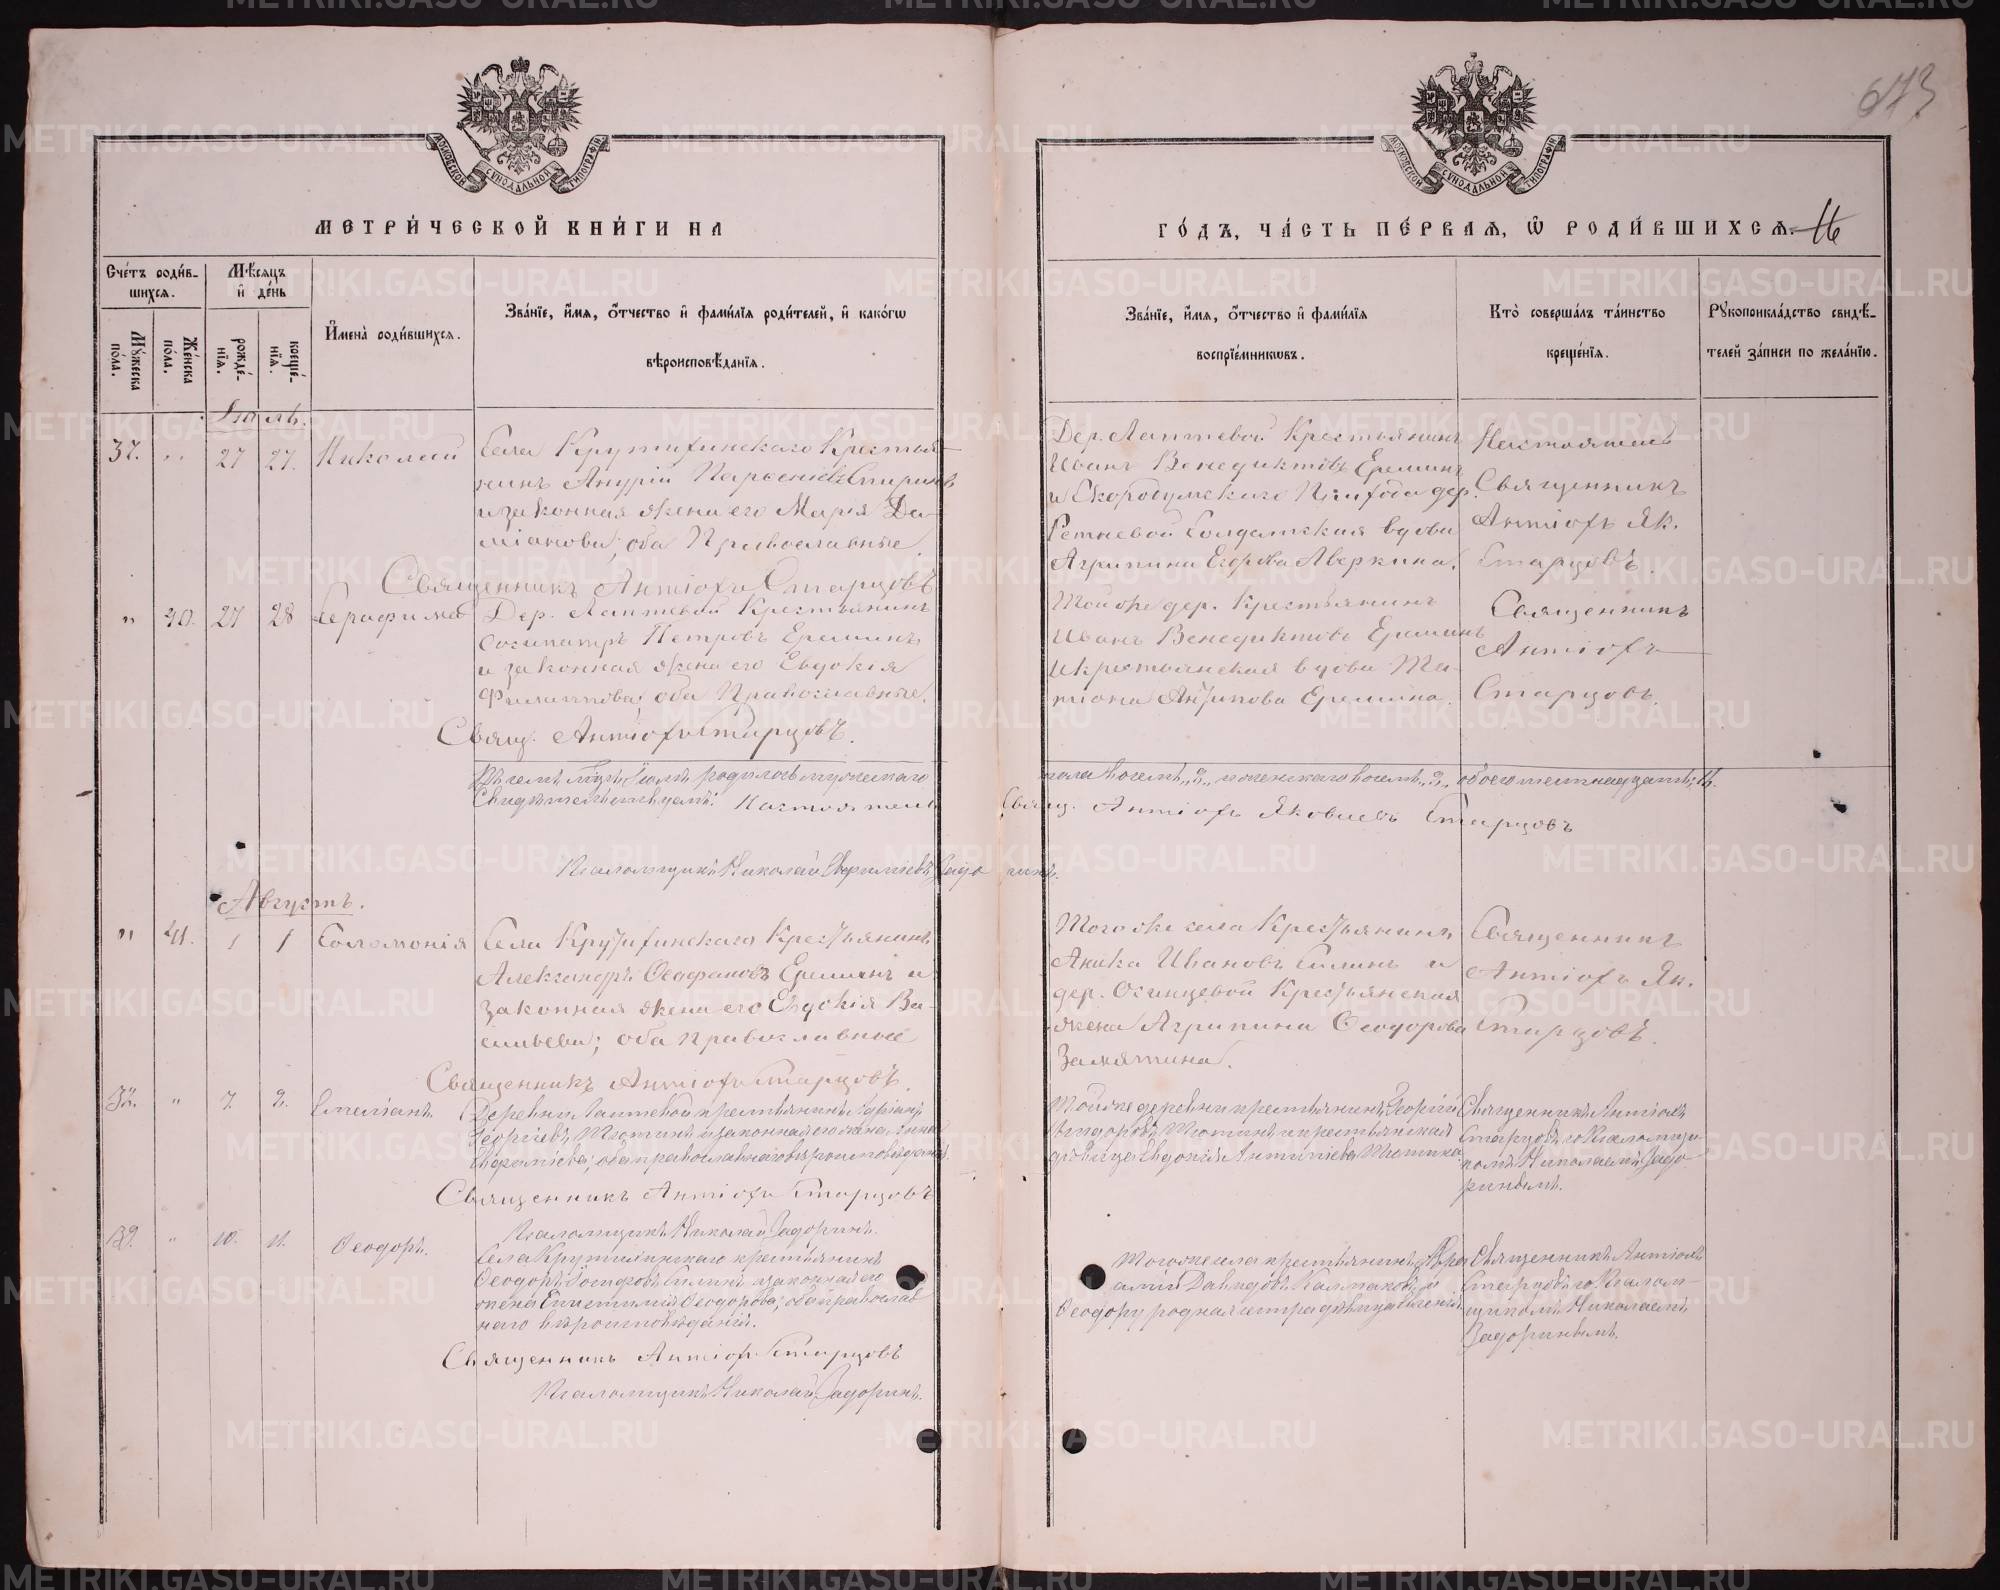 МЕТРИЧЕСКОЙ КНИГИ НА
ГОДЪ, ЧАСТЬ ПЕРВАЯ, Ѡ РОДИВШИХСЯ.
16
673
МОСКОВСКОЙ СѴНОДАЛЬНОЙ ТИПОГРАФІИ
МОСКОВСКОЙ СѴНОДАЛЬНОЙ ТИПОГРАФІИ
Счетъ родив-
шихся.
Мѣсяцъ
и день
Мужеска пола.
Женска пола.
рожденія.
крещенія.
Имена родившихся.
Званіе, имя, отчество и фамилія родителей, и какогѡ
вѣроисповѣданія.
Званіе, имя, отчество и фамилія
воспріемникѡвъ.
Кто совершалъ таинство
крещенія.
Рукоприкладство свидѣ-
телей записи по желанію.
Іюль.
37. " 27 27. Николай
Села Крутихинскаго Крестья-
нинъ Андрій Парѳеновъ Спиринъ
и законная жена его Марія Да-
міанова; оба Православные.
Священникъ Антіохъ Старцовъ
Дер. Лаптевой Крестьянинъ
Иванъ Венедиктовъ Ереминъ
и Скородумскаго Прихода дер.
Ретневой Солдатская вдова
Агрипина Егорова Аверкина.
Настоятель
Священникъ
Антіохъ Як.
Старцовъ.
" 40. 27 28 Серафима
Дер. Лаптевой Крестьянинъ
Сосипатръ Петровъ Ереминъ
и законная жена его Евдокія
Филиппова; оба Православные.
Свящ. Антіохъ Старцовъ.
Тойже дер. Крестьянинъ
Иванъ Венедиктовъ Ереминъ
и крестьянская вдова Та-
тіана Антипова Еремина.
Священникъ
Антіохъ
Старцовъ.
Въ семъ мцѣ Іюлѣ родилось мужескаго
пола восемь "8" и женскаго восемь "8", обоего шестнадцать, 16.
Свидѣтельствуемъ: Настоятель
Свящ. Антіохъ Яковлевъ Старцовъ
Псаломщикъ Николай Задоринъ.
Августъ.
" 41. 1 1 Соломонія
Села Крутихинскаго Крестьянинъ
Александръ Ѳеофановъ Ереминъ и
законная жена его Евдокія Ва-
сильева; оба православные
Священникъ Антіохъ Старцовъ.
Тогоже села Крестьянинъ
Аника Ивановъ Силинъ и
дер. Осинцевой Крестьянская
жена Агрипина Ѳеодорова
Замятина.
Священникъ
Антіохъ Як.
Старцовъ.
38. " 7. 9. Стефанъ.
Деревни Лаптевой крестьянинъ
Георгіевъ и законная его жена Анна
оба православнаго вѣроисповѣданія.
Священникъ Антіохъ Старцовъ
Псаломщикъ Николай Задоринъ.
Тойже деревни крестьянинъ Георгій
и крестьянская
дѣвица Евдокія
Священникъ Антіохъ
Старцовъ съ Псаломщи-
комъ Николаемъ Задо-
ринымъ.
39. " 10. 11. Ѳеодоръ.
Села Крутихинскаго крестьянинъ
Ѳеодоръ Іосифовъ Силинъ и законная его
жена Епистимія Ѳеодорова; оба православ
наго вѣроисповѣданія.
Священникъ Антіохъ Старцовъ
Псаломщикъ Николай Задоринъ.
Тогоже села крестьянинъ
Давидовъ Калмаковъ, и
Ѳеодору родная сестра дѣвица
Священникъ Антіохъ
Старцовъ съ Псалом-
щикомъ Николаемъ
Задоринымъ.
METRIKI.GASO-URAL.RU